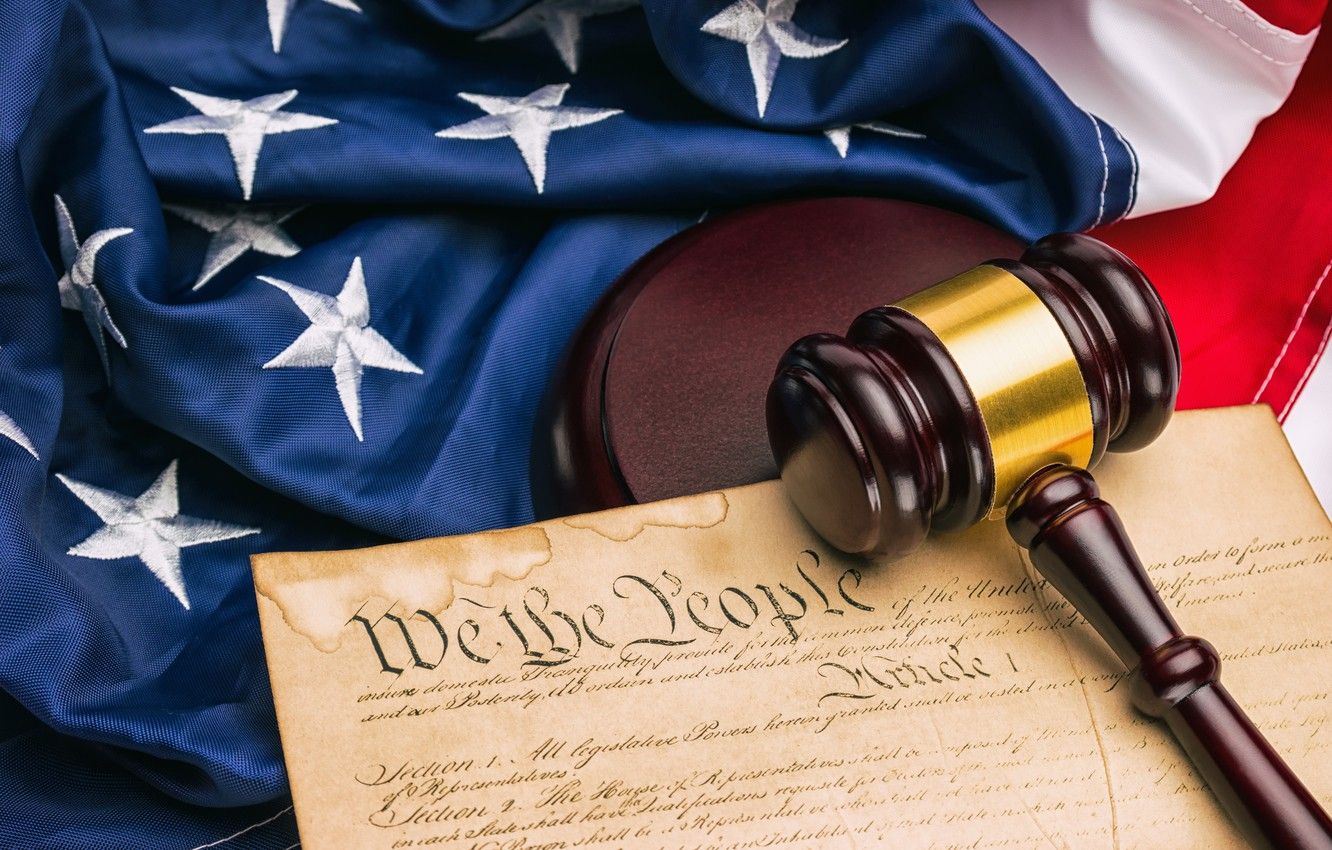 We the People of the United in Order to form a m
insure domestic Tranquility, provide for the common defence, promote the Welfare, and secure th
and our Posterity, do ordain and establish this Constitution for the United America.
Article 1
Section 1. All legislative Powers herein granted shall be vested in a Cong United States,
of Representatives.
Section 2. The House of Representatives shall be composed of Mem second year
in each State shall have the Qualifications requisite for Electors of the most State Leg
No Person shall be a Representative who shall not have
Inhabitant of that State in which